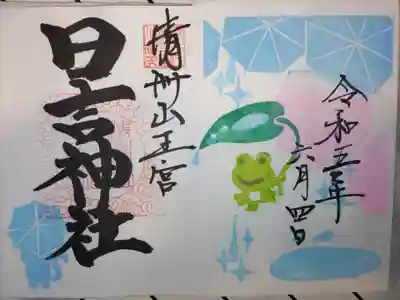 令和五年
六月四日
清洲山王宮
日吉神社